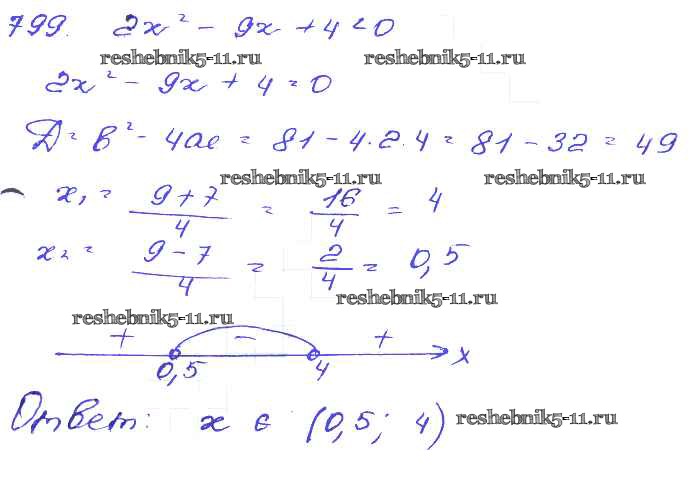 799. 2x² - 9x + 4 < 0
reshebnik5-11.ru reshebnik5-11.ru
2x² - 9x + 4 = 0
D = b² - 4ac = 81 - 4·2·4 = 81 - 32 = 49
reshebnik5-11.ru reshebnik5-11.ru
x₁ = (9 + 7)/4 = 16/4 = 4
x₂ = (9 - 7)/4 = 2/4 = 0,5
reshebnik5-11.ru
reshebnik5-11.ru
+ - +
0,5 4 x
Ответ: x ∈ (0,5; 4) reshebnik5-11.ru